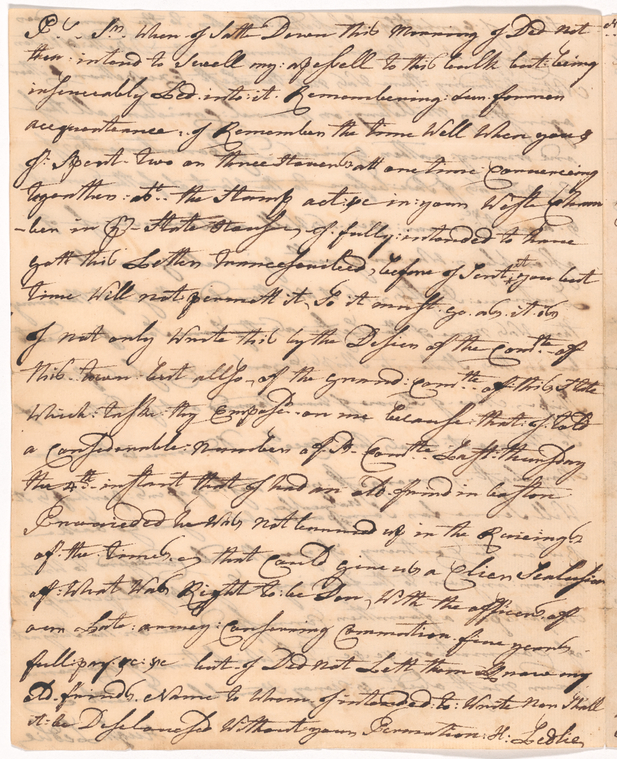 P. S. Sr. When I Satt Down this Morning I Did not
then: intend to Swell my: Epessell to this bulk but: being
insenceably Led: into: it Remembering: our former
acquentance, I Remember the time Well When you &
I: Spent two or three: houers: att one time Convercing
together: abt. the Stamp act: &c in: your Weste Cham
-ber in State Hause, I: fully: intended to have
gott this Letter: transcrib'd before I Sent: it you but
time Will not permett it, So it must: go: as: it is
I not only Wrote this by the Desier of the Comte. of
this: town but allso, of the grand: Comte. of: this State
Which: taske they Empose'd: on me because: that: I: told
a Considerable: Number of Sd. Comtte Last: thursday
the 4th. instant that I had an old friend in boston
Provideded he Was not turned up in the Raeing
of the: times: that Could give us a Clear Sealusion
of: What Was Right to: be Don, With the officers of
our Late: armey: Conserning Commation five years
full: pay: &c: &c but I Did not Lett them Know my
old: friends Name to Whom I intended: to: Wrote Nor Shall
it: be Discloaesed Without your Permation: H: Leslie